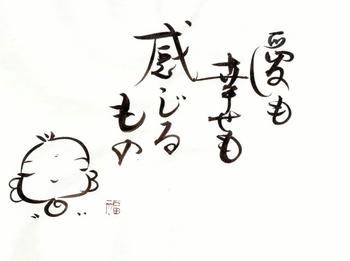 愛も
幸せも
感じる
もの
福